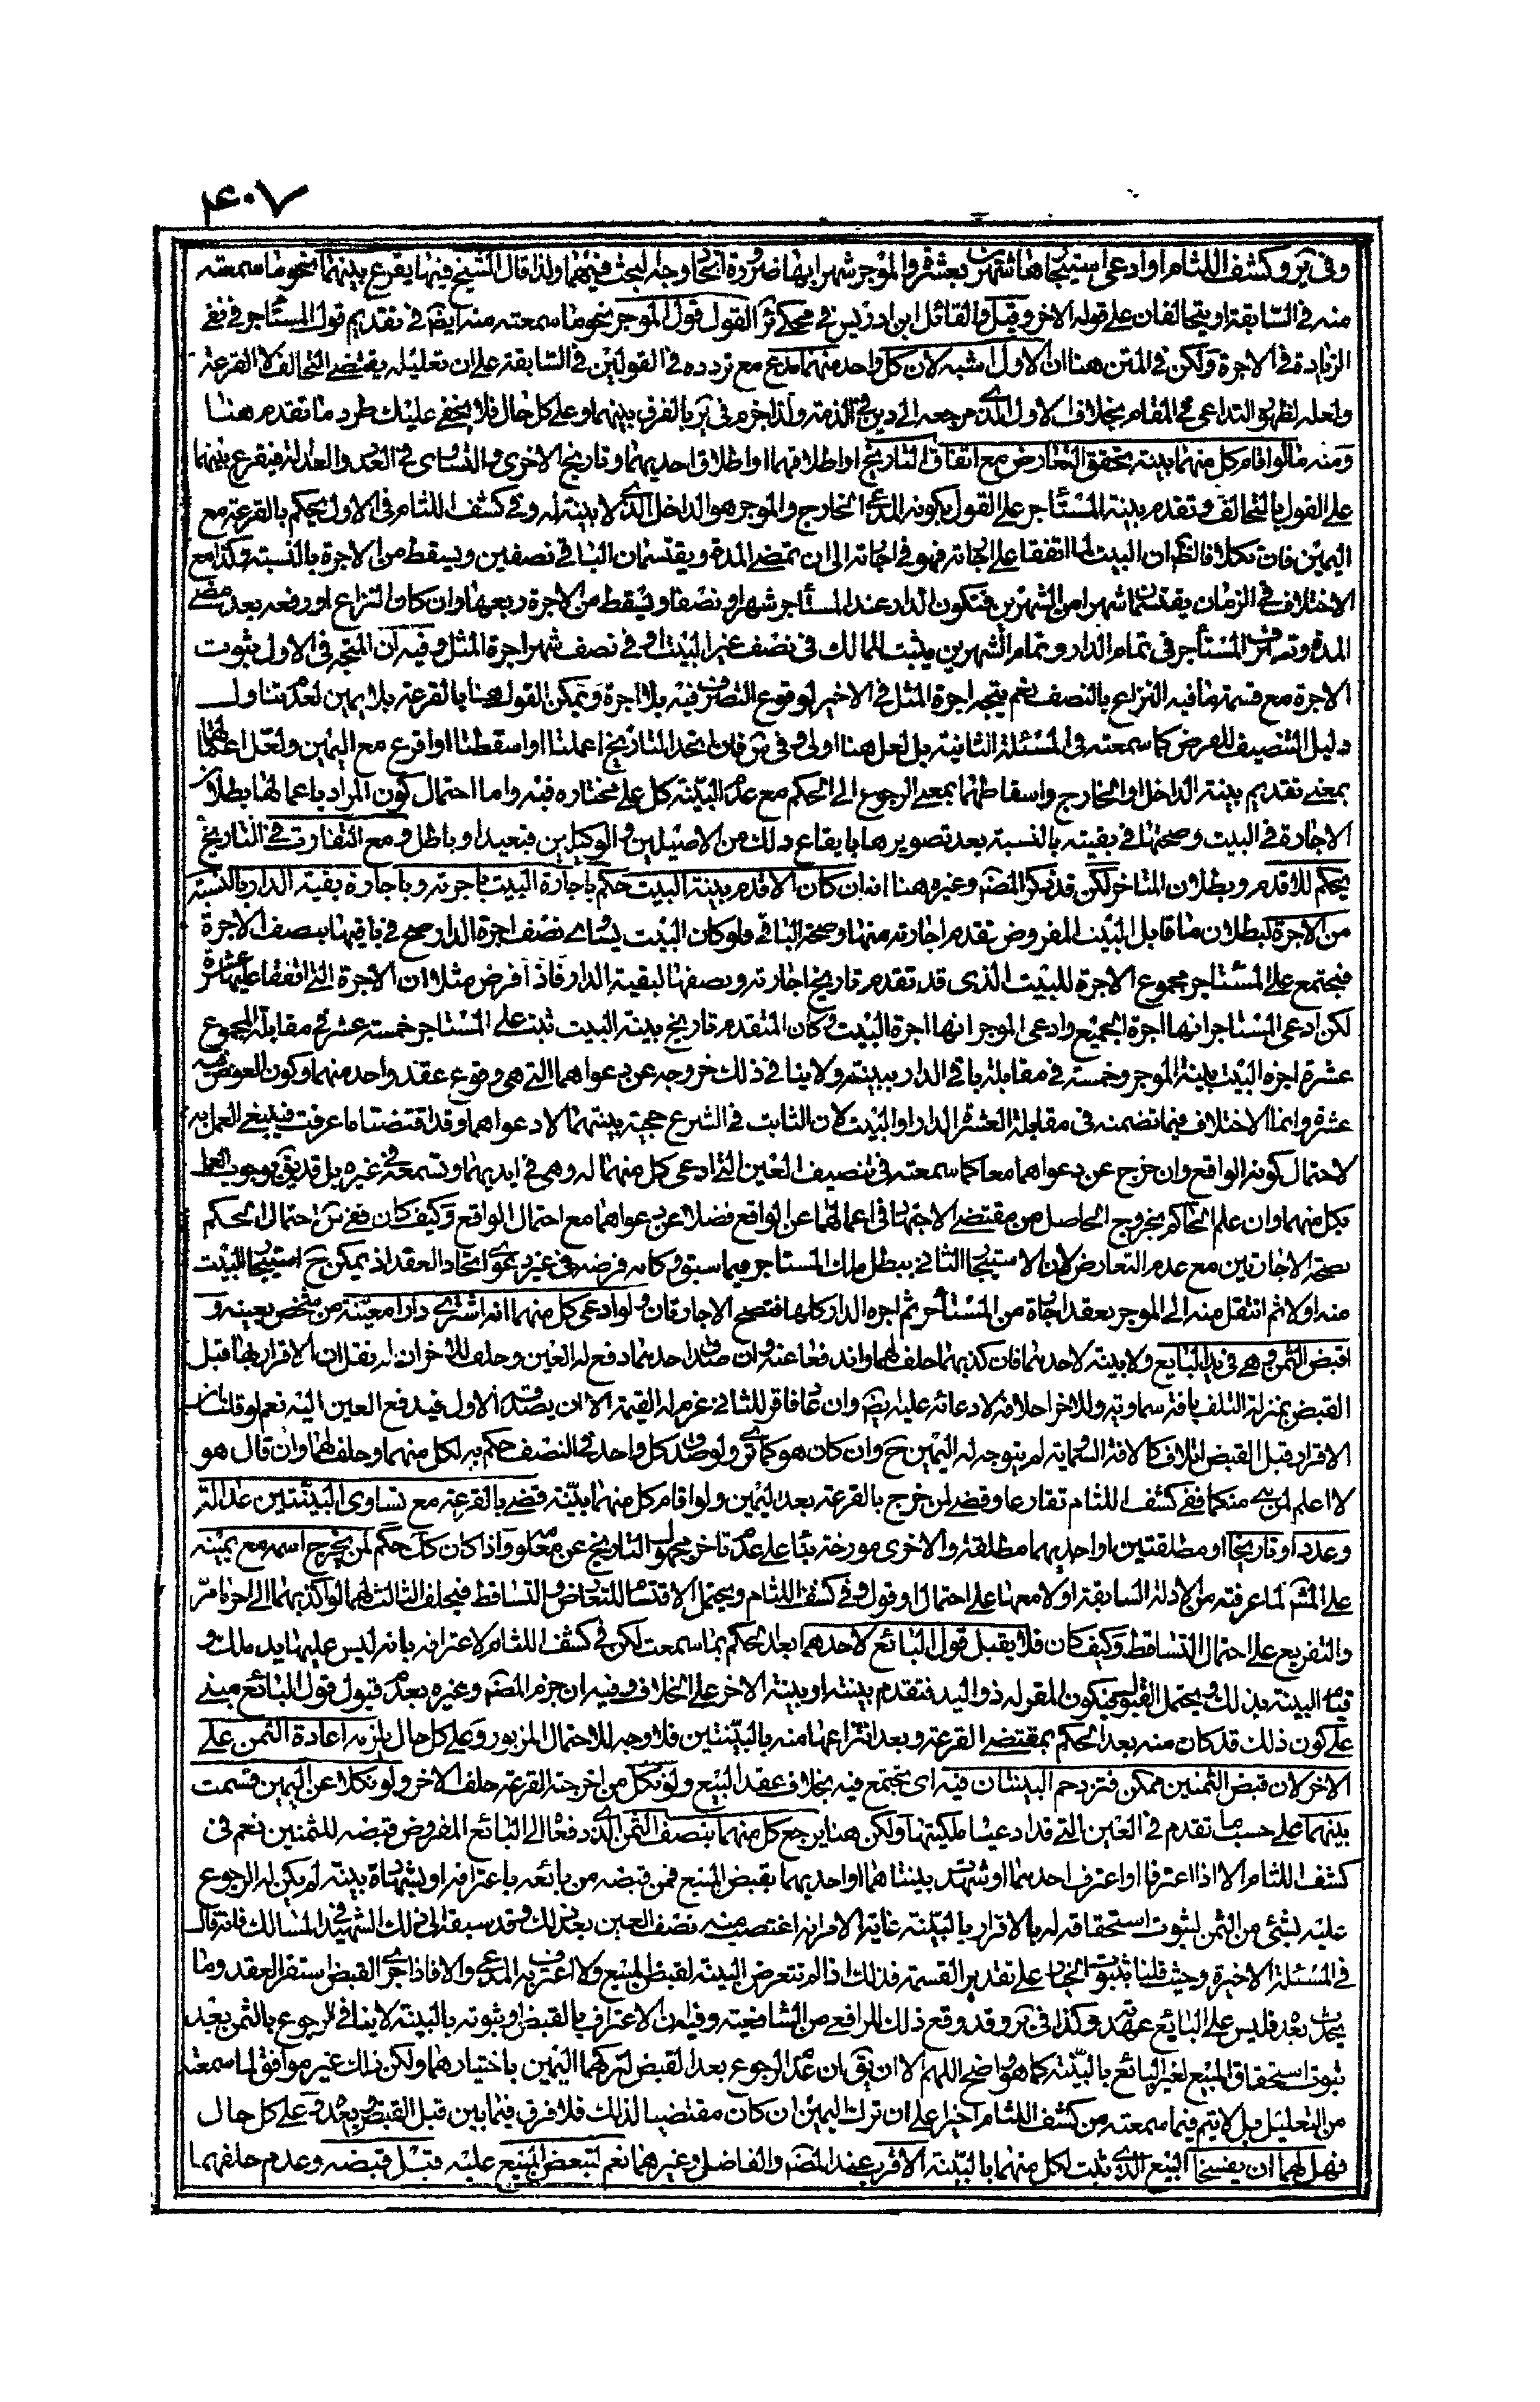 ۴۰۷
وفى ير وكشف اللثام او ادعى استيجارها شهرين بعشرة والموجر شهرا بها ضرورة اتحاد وجه البحث فيهما ولذا قال الشيخ فيها يقرع بينهما نحو ما سمعته
منه فى السابقة او يتحالفان على قوله الاخر وقيل والقائل ابن ادريس فى محكى ئر القول قول الموجر نحو ما سمعته منه ايضا فى تقديم قول المستاجر فى نفى
الزيادة فى الاجرة ولكن فى المتن هنا ان الاول اشبه لان كل واحد منهما مدع مع تردده فى القولين فى السابقة على ان تعليله يقتضى التحالف لا القرعة
ولعله لظهور التداعى فى المقام بخلاف الاول الذى مرجعه الى دين فى الذمة ولذا جزم فى ير بالفرق بينهما وعلى كل حال فلا يخفى عليك طرد ما تقدم هنا
ومنه ما لو اقام كل منهما بينة تحقق التعارض مع اتفاق التاريخ او اطلاقهما او اطلاق احديهما وتاريخ الاخرى والتساوى فى العدد والعدالة فيقرع بينهما
على القول بالتحالف وتقدم بينة المستأجر على القول بكونه المدعى الخارج والموجر هو الداخل الذى لا بينة له وفى كشف اللثام فى الاول يحكم بالقرعة مع
اليمين فان نكلا فالظ ان البيت لما اتفقا على اجارته فهو فى اجارته الى ان تمضى المدة ويقتسمان الباقى نصفين ويسقط من الاجرة بالنسبة وكذا مع
الاختلاف فى الزمان يقتسمان شهرا من الشهرين فتكون الدار عند المستأجر شهرا ونصفا ويسقط من الاجرة ربعها وان كان التنازع او رفعه بعد مضى
المدة وتصرف المستأجر فى تمام الدار وتمام الشهرين يثبت للمالك فى نصف غير البيت او فى نصف شهر اجرة المثل وفيه ان المتجه فى الاول ثبوت
الاجرة مع قسمة ما فيه النزاع بالنصف نعم يتجه اجرة المثل فى الاخير لوقوع التصرف فيه بلا اجرة ويمكن القول هنا بالقرعة بلا يمين لعدم تناول
دليل التنصيف للفرض كما سمعته فى المسئلة الثانية بل لعل هنا اولى وفى س فان اتحد التاريخ اعملنا او اسقطنا او اقرع مع اليمين ولعل اعمالهما
بمعنى تقديم بينة الداخل او الخارج واسقاطهما بمعنى الرجوع الى الحكم مع عدم البينة كل على مختاره فيه واما احتمال كون المراد باعمالها بطلان
الاجارة فى البيت وصحتها فى بقيته بالنسبة بعد تصويرها بايقاع ذلك من الاصيلين والوكيلين فبعيد او باطل ومع التفاوت فى التاريخ
يحكم للاقدم وبطلان المتاخر لكن قد ذكر المصنف وغيره هنا انه ان كان الاقدم بينة البيت حكم باجارة البيت باجرته وباجارة بقية الدار بالنسبة
من الاجرة لبطلان ما قابل البيت المفروض تقدم اجارته منها وصحة الباقى فلو كان البيت يساوى نصف اجرة الدار صح فى باقيها بنصف الاجرة
فيجتمع على المستاجر مجموع الاجرة للبيت الذى قد تقدم تاريخ اجارته ونصفها لبقية الدار فاذا فرض مثلا ان الاجرة التى اتفقا عليها عشرة
لكن ادعى المستاجر انها اجرة الجميع وادعى الموجر انها اجرة البيت وكان المتقدم تاريخ بينة البيت ثبت على المستاجر خمسة عشر فى مقابلة المجموع
عشرة اجرة البيت ببينة الموجر وخمسة فى مقابلة باقى الدار ببينته ولا ينافى ذلك خروجه عن دعواهما التى هى وقوع عقد واحد منهما وكون العوض فيه
عشرة وانما الاختلاف فيما تضمنه فى مقابلة العشرة الدار او البيت لان الثابت فى الشرع حجية بينتهما لا دعواهما وقد اقتضتا ما عرفت فينبغى العمل به
لاحتمال كونه الواقع وان خرج عن دعواهما معا كما سمعته فى تنصيف العين التى ادعى كل منهما له وهى فى ايديهما وتسمعه فى غيره بل قد يق بوجوب العمل
بكل منهما وان علم الحاكم بخروج الحاصل من مقتضى الاجتهاد فى اعمالهما عن الواقع فضلا عن دعواهما مع احتمال الواقع وكيف كان ففى س احتمال الحكم
بصحة الاجارتين مع عدم التعارض لان الاستيجار الثانى يبطل ملك المستاجر فيما سبق وكانه فرضه فى غير دعوى اتحاد العقد اذ يمكن ح استيجار البيت
منه اولا ثم انتقل منه الى الموجر بعقد اجارة من المستأجر ثم اجره الدار كلها فتصح الاجارتان ولو ادعى كل منهما انه اشترى دارا معينة من شخص بعينه و
اقبض الثمن وهى فى يد البايع ولا بينة لاحدهما فان كذبهما حلف لهما واندفعا عنه وان صدق احدهما دفع له العين وحلف للاخر ان لم نقل ان الاقرار بها قبل
القبض بمنزلة التلف بافة سماوية وللاخر احلافه لادعائه عليه ايضا وان عاد فاقر للثانى غرم له القيمة الا ان يصدقه الاول فيدفع العين اليه نعم لو قلنا ان
الاقرار قبل القبض اتلاف كالافة السماوية لم يتوجه له اليمين ح وان كان هو كما ترى ولو صدق كل واحد فى النصف حكم به لكل منهما وحلف لهما وان قال هو
لا اعلم لمن هى منكما ففى كشف اللثام تقارعا وقضى لمن خرج بالقرعة بعد اليمين ولو اقام كل منهما بينة قضى بالقرعة مع تساوى البينتين عدالة
وعددا وتاريخا او مطلقتين او احديهما مطلقة والاخرى مورخة بناء على عدم تاخر مجهول التاريخ عن معلومه واذا كان كك حكم لمن يخرج اسمه مع يمينه
على المش لما عرفته من الادلة السابقة اولا معها على احتمال او قول وفى كشف اللثام ويحتمل الاقتسام للتعارض والتساقط فيحلف الثالث لهما لو اكذبهما الى اخر ما مر
والتفريع على احتمال التساقط وكيف كان فلا يقبل قول البائع لاحدهما بعد الحكم بما سمعت لكن فى كشف اللثام لاعترافه بانه ليس عليها يد ملك و
قيام البينة بذلك ويحتمل القبول فيكون المقر له ذو اليد فتقدم بينته او بينة الاخر على الخلاف وفيه ان جزم المصنف وغيره بعدم قبول قول البائع مبنى
على كون ذلك قد كان منه بعد الحكم بمقتضى القرعة وبعد انتزاعها منه بالبينتين فلا وجه للاحتمال المزبور وعلى كل حال يلزمه اعادة الثمن على
الاخر لان قبض الثمنين ممكن فتزدحم البينتان فيه اى تجتمع فيه بخلاف عقد البيع ولو نكل من اخرجته القرعة حلف الاخر ولو نكلا عن اليمين قسمت
بينهما على حسب ما تقدم فى العين التى قد ادعيا ملكيتها ولكن هنا يرجع كل منهما بنصف الثمن الذى دفعا الى البائع المفروض قبضه للثمنين نعم فى
كشف اللثام الا اذا اعترفا او اعترف احدهما او شهدت بينتاهما او احديهما بقبض المبيع فمن قبضه من بائعه باعترافه او بشهادة بينة لم يكن له الرجوع
عليه بشئ من الثمن لثبوت استحقاقه له بالاقرار او البينة غاية الامر انه اغتصب منه نصف العين بعد ذلك وقد سبقه الى ذلك الشهيد فى المسالك فانه قال
فى المسئلة الاخيرة وحيث قلنا بثبوت الخيار على تقدير القسمة فذلك اذا لم تتعرض البينة لقبض المبيع ولا اعترف به المدعى والا فاذا جرى القبض استقر العقد وما
يحدث بعده فليس على البايع عهدته وكذا فى ير وقد وقع ذلك للرافعى من الشافعية وفيه ان الاعتراف بالقبض او ثبوته بالبينة لا ينافى الرجوع بالثمن بعد
ثبوت استحقاق المبيع لغير البائع بالبينة كما هو واضح اللهم الا ان يق ان عدم الرجوع بعد القبض لتركهما اليمين باختيارهما ولكن ذلك غير موافق لما سمعته
من التعليل بل لا يتم فيما سمعته من كشف اللثام اخيرا على ان ترك اليمين ان كان مقتضيا لذلك فلا فرق فيما بين قبل القبض وبعده وعلى كل حال
فهل لهما ان يفسخا البيع الذى ثبت لكل منهما بالبينة الاقرب عند المصنف والفاضل وغيرهما نعم لتبعض المبيع عليه قبل قبضه وعدم حلفهما